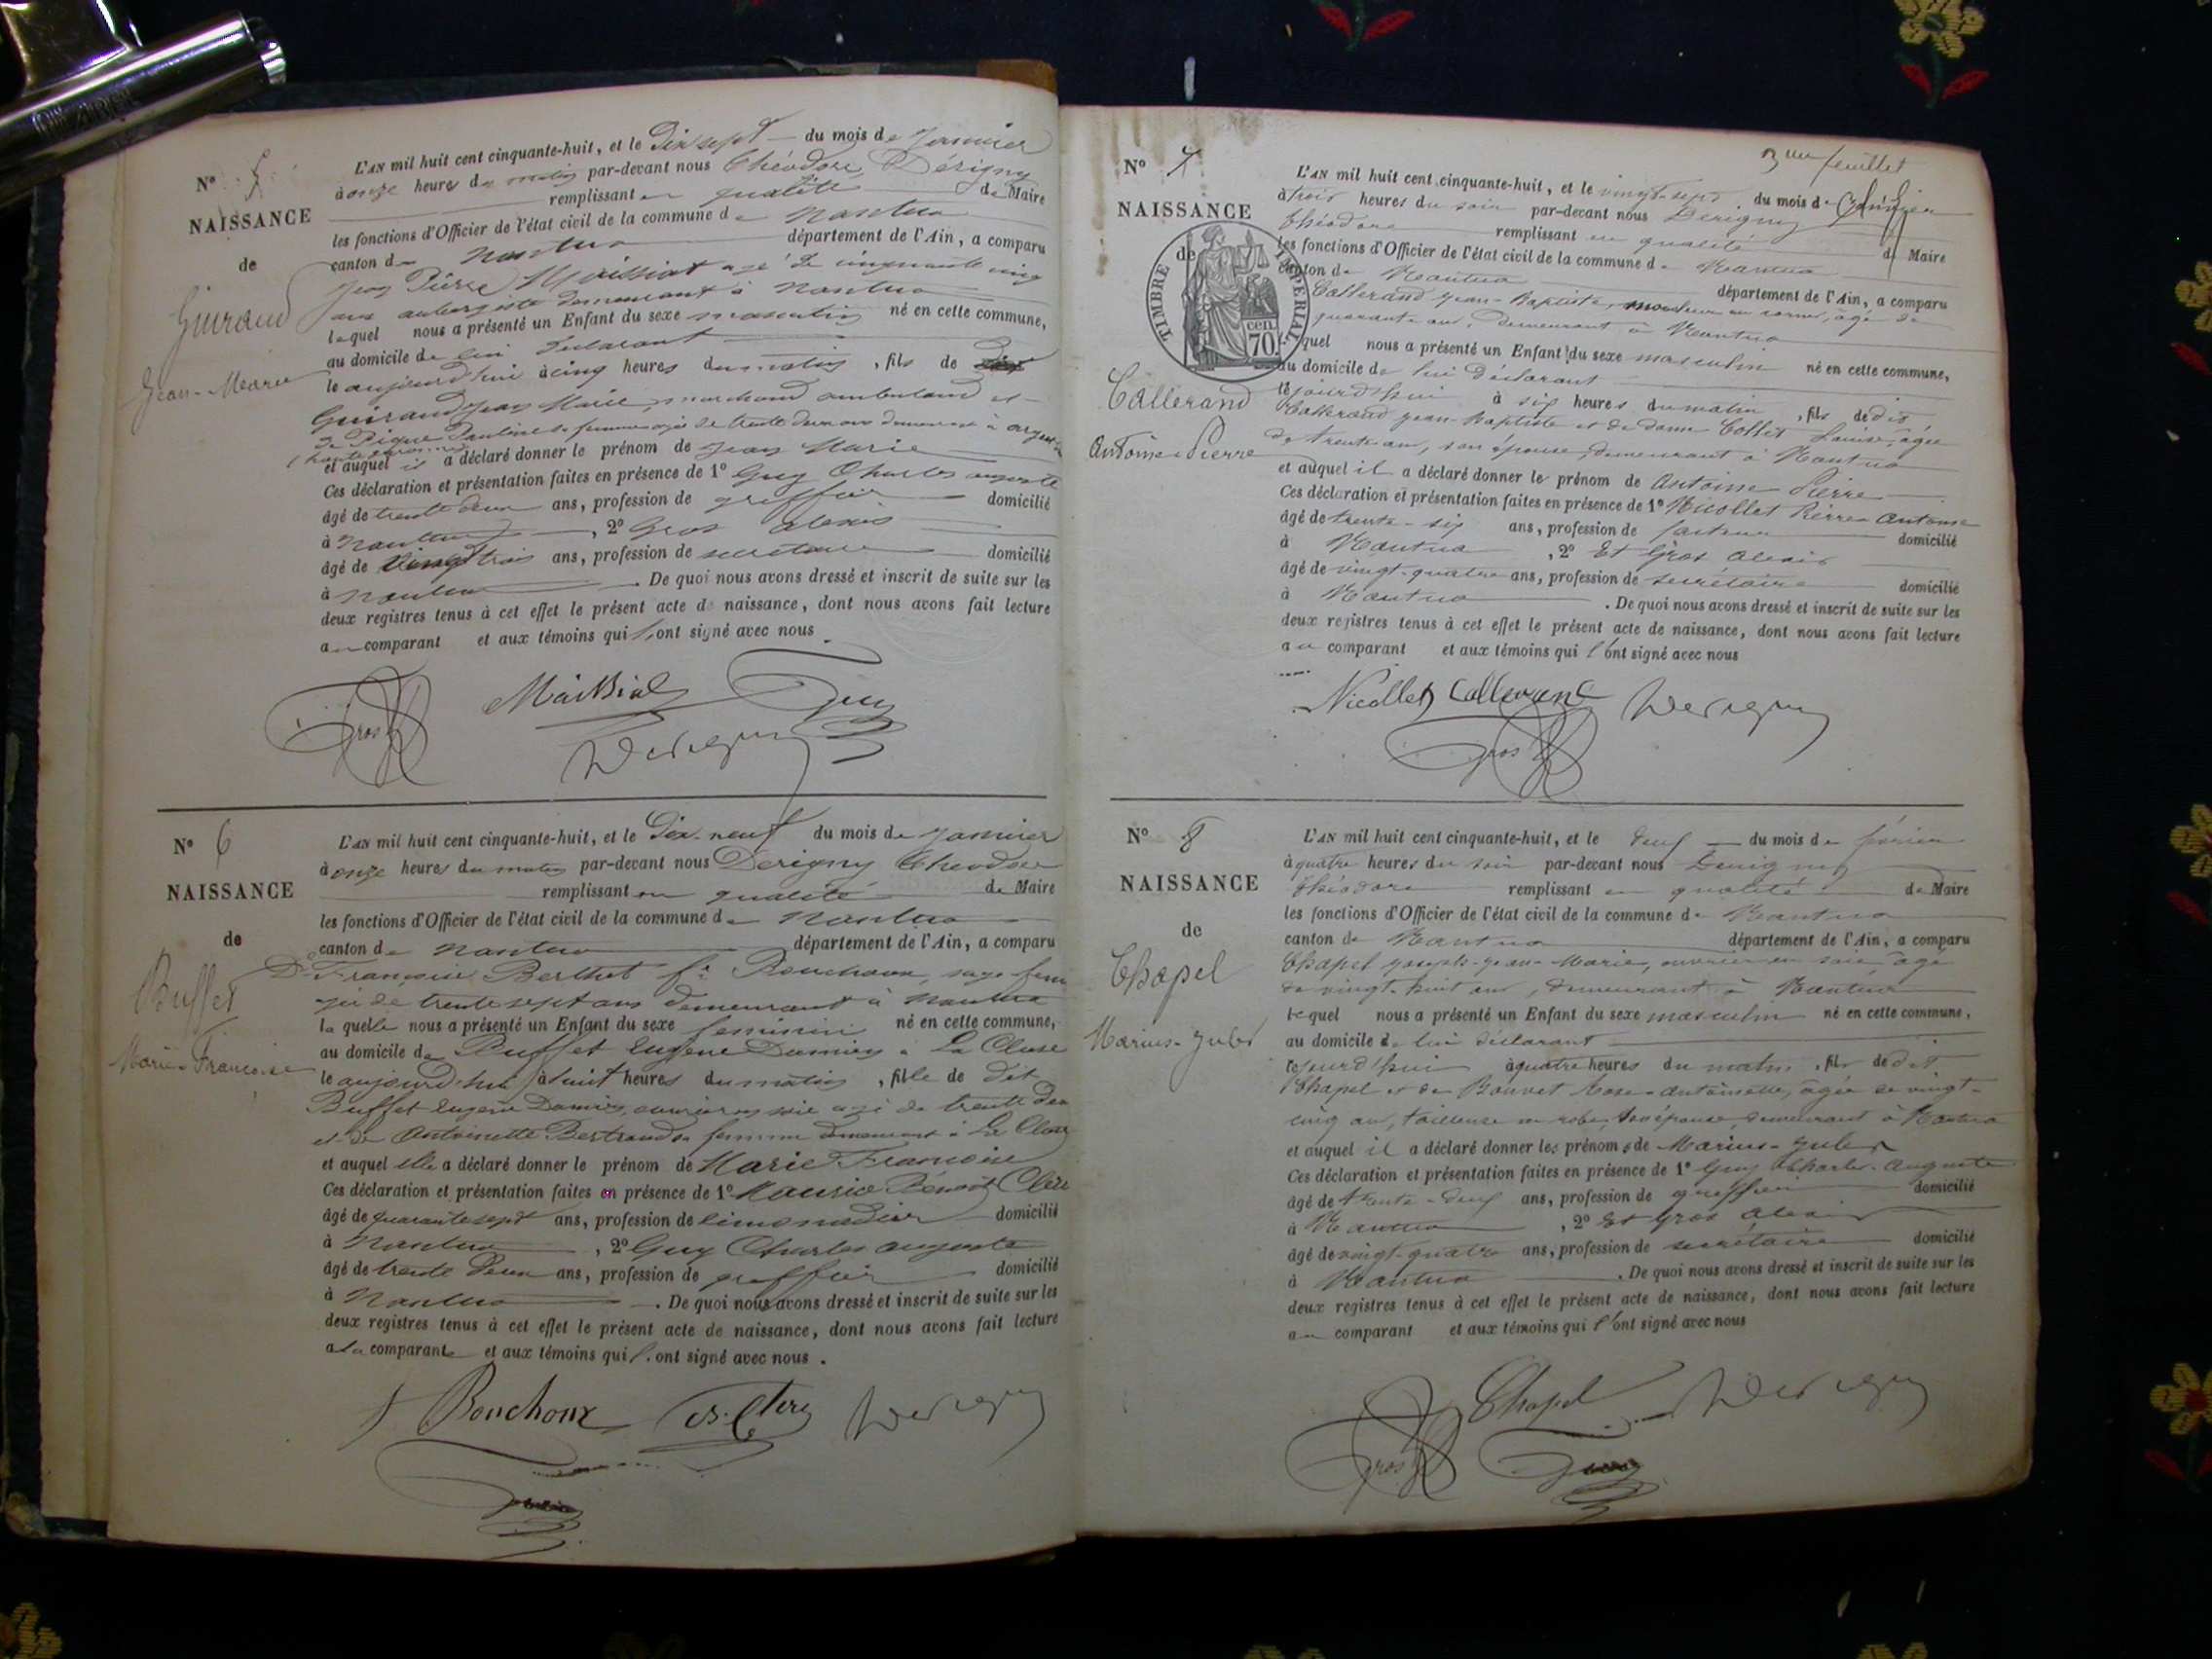 N° 5
NAISSANCE
de
Guiraud
Jean-Marie
L'AN mil huit cent cinquante-huit, et le Dix sept du mois de Janvier
à onze heures du matin par-devant nous Théodore Dérigny
remplissant en qualité de Maire
les fonctions d'Officier de l'état civil de la commune de Nantua
canton de Nantua département de l'Ain, a comparu
Jean Pierre agé de cinquante cinq
ans aubergiste demeurant à Nantua
lequel nous a présenté un Enfant du sexe masculin né en cette commune,
au domicile de lui déclarant
le aujourd'hui à cinq heures du matin, fils de
Guiraud Jean Marie, marchand ambulant et
de Pique Pauline sa femme agée de trente deux ans demeurant à
et auquel il a déclaré donner le prénom de Jean Marie
Ces déclaration et présentation faites en présence de 1° Guy Charles auguste
âgé de trente deux ans, profession de greffier domicilié
à Nantua, 2° Gros alexis
âgé de vingt trois ans, profession de secrétaire domicilié
à Nantua. De quoi nous avons dressé et inscrit de suite sur les
deux registres tenus à cet effet le présent acte de naissance, dont nous avons fait lecture
au comparant et aux témoins qui l'ont signé avec nous.
Gros Guy
Derigny
N° 6
NAISSANCE
de
Buffet
Marie-Francoise
L'AN mil huit cent cinquante-huit, et le Dix-neuf du mois de Janvier
à onze heures du matin par-devant nous Derigny Théodore
remplissant en qualité de Maire
les fonctions d'Officier de l'état civil de la commune de Nantua
canton de Nantua département de l'Ain, a comparu
De Françoise Berthet fe Bouchoux, sage femme
agée de trente sept ans demeurant à Nantua
la quelle nous a présenté un Enfant du sexe feminin né en cette commune,
au domicile de Buffet Eugène Damien à La Cluse
le aujourd'hui à huit heures du matin, fille de dit
Buffet Eugène Damien, ouvrier en soie agé de trente deux
et de Antoinette Bertrand sa femme demeurant à La Cluse
et auquel elle a déclaré donner le prénom de Marie Francoise
Ces déclaration et présentation faites en présence de 1° Maurice Benoit Clerc
âgé de quarante sept ans, profession de limonadier domicilié
à Nantua, 2° Guy Charles auguste
âgé de trente deux ans, profession de greffier domicilié
à Nantua. De quoi nous avons dressé et inscrit de suite sur les
deux registres tenus à cet effet le présent acte de naissance, dont nous avons fait lecture
a la comparante et aux témoins qui l'ont signé avec nous.
f Bouchoux Clerc Derigny
Guy
3me feuillet
N° 7
NAISSANCE
de
TIMBRE IMPERIAL
70 cen.
Callerand
Antoine Pierre
L'AN mil huit cent cinquante-huit, et le vingt-sept du mois de Janvier
à trois heures du soir par-devant nous Derigny
Théodore remplissant en qualité de Maire
les fonctions d'Officier de l'état civil de la commune de Nantua
canton de Nantua département de l'Ain, a comparu
Callerand Jean-Baptiste, âgé de
quarante ans, demeurant à Nantua
quel nous a présenté un Enfant du sexe masculin né en cette commune,
au domicile de lui déclarant
le jourd'hui à six heures du matin, fils de dit
Callerand Jean-Baptiste et de dame Collet Louise, âgée
de trente ans, son épouse, demeurant à Nantua
et auquel il a déclaré donner le prénom de Antoine Pierre
Ces déclaration et présentation faites en présence de 1° Nicollet Pierre Antoine
âgé de trente-six ans, profession de facteur domicilié
à Nantua, 2° Et Gros alexis
âgé de vingt-quatre ans, profession de secrétaire domicilié
à Nantua. De quoi nous avons dressé et inscrit de suite sur les
deux registres tenus à cet effet le présent acte de naissance, dont nous avons fait lecture
au comparant et aux témoins qui l'ont signé avec nous
Nicollet Callerand Derigny
Gros
N° 8
NAISSANCE
de
Chapel
Marius-Jules
L'AN mil huit cent cinquante-huit, et le deux du mois de février
à quatre heures du soir par-devant nous Derigny
Théodore remplissant en qualité de Maire
les fonctions d'Officier de l'état civil de la commune de Nantua
canton de Nantua département de l'Ain, a comparu
Chapel Joseph-Jean-Marie, ouvrier en soie, âgé
de vingt-huit ans, demeurant à Nantua
lequel nous a présenté un Enfant du sexe masculin né en cette commune,
au domicile de lui déclarant
lejourd'hui à quatre heures du matin, fils de dit
Chapel et de Bouvet Rose-Antoinette, âgée de vingt-
cinq ans, tailleuse en robes, son épouse, demeurant à Nantua
et auquel il a déclaré donner les prénoms de Marius-Jules
Ces déclaration et présentation faites en présence de 1° Guy Charles-Auguste
âgé de trente-deux ans, profession de greffier domicilié
à Nantua, 2° Et Gros alexis
âgé de vingt-quatre ans, profession de secrétaire domicilié
à Nantua. De quoi nous avons dressé et inscrit de suite sur les
deux registres tenus à cet effet le présent acte de naissance, dont nous avons fait lecture
au comparant et aux témoins qui l'ont signé avec nous
Chapel Derigny
Gros Guy